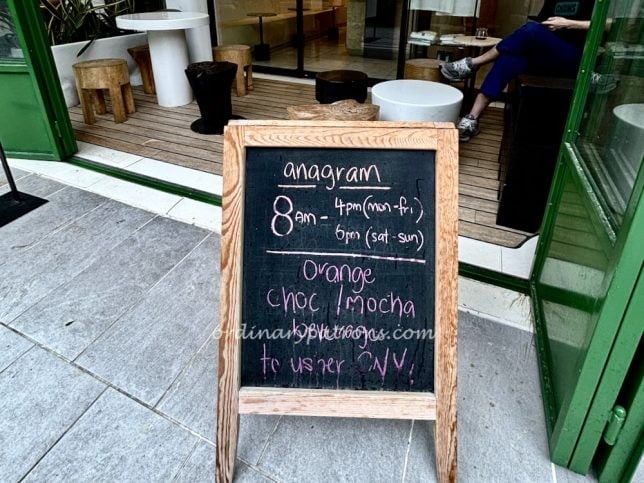 anagram
8AM - 4pm (mon-fri)
6pm (sat-sun)
Orange
choc / mocha
beverages
ordinarypatrons.com
to usher CNY!